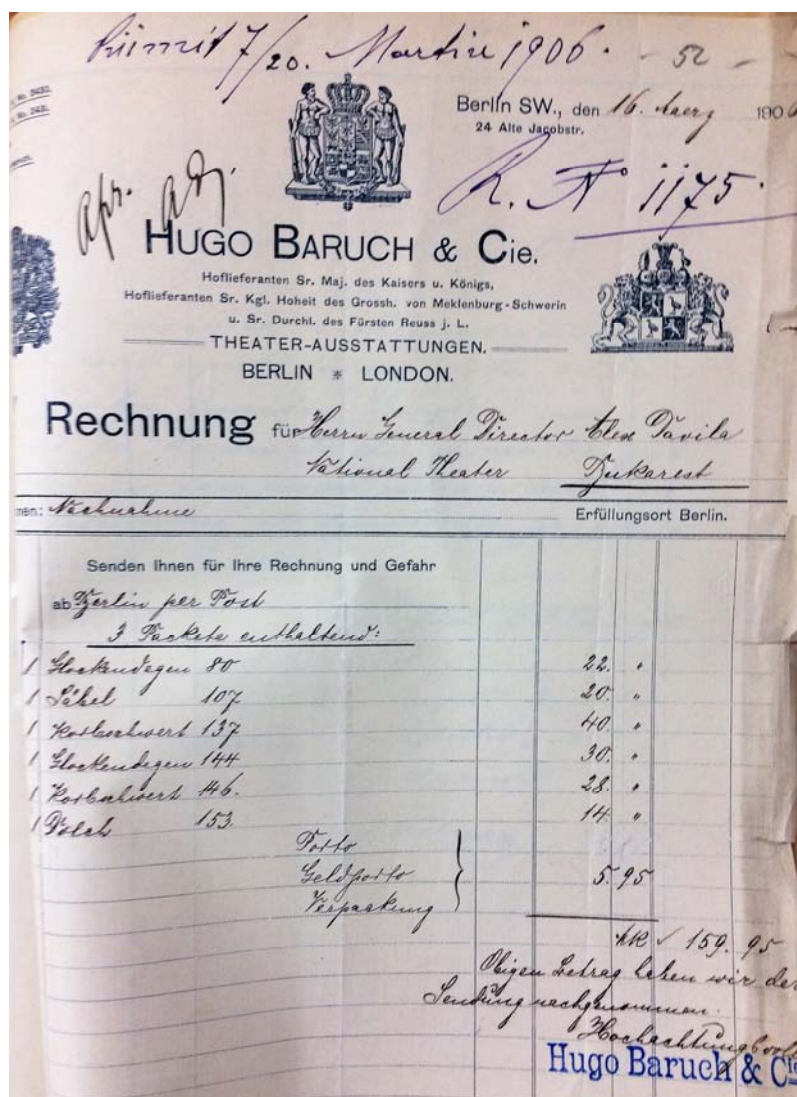 Priimit 7/20. Martie 1906. - 52 -
Berlin SW., den 16. Maerz 1906
24 Alte Jacobstr.
R. No 1175.
HUGO BARUCH & Cie.
Hoflieferanten Sr. Maj. des Kaisers u. Königs,
Hoflieferanten Sr. Kgl. Hoheit des Grossh. von Meklenburg-Schwerin
u. Sr. Durchl. des Fürsten Reuss j. L.
THEATER-AUSSTATTUNGEN.
BERLIN * LONDON.
Rechnung für Herrn General Director Alex Davila
National Theater Bukarest
men: Nachnahme Erfüllungsort Berlin.
Senden Ihnen für Ihre Rechnung und Gefahr
ab Berlin per Post
3 Packete enthaltend:
1 Glockendegen 80 22. "
1 Säbel 107 20. "
1 Korbschwert 137 40. "
1 Glockendegen 144 30. "
1 Korbschwert 146. 28. "
1 Dolch 153. 14. "
Porto
Geldporto 5.95
Verpackung
Mk 159. 95
Obigen Betrag haben wir der
Sendung nachgenommen.
Hochachtungsvoll
Hugo Baruch & Cie